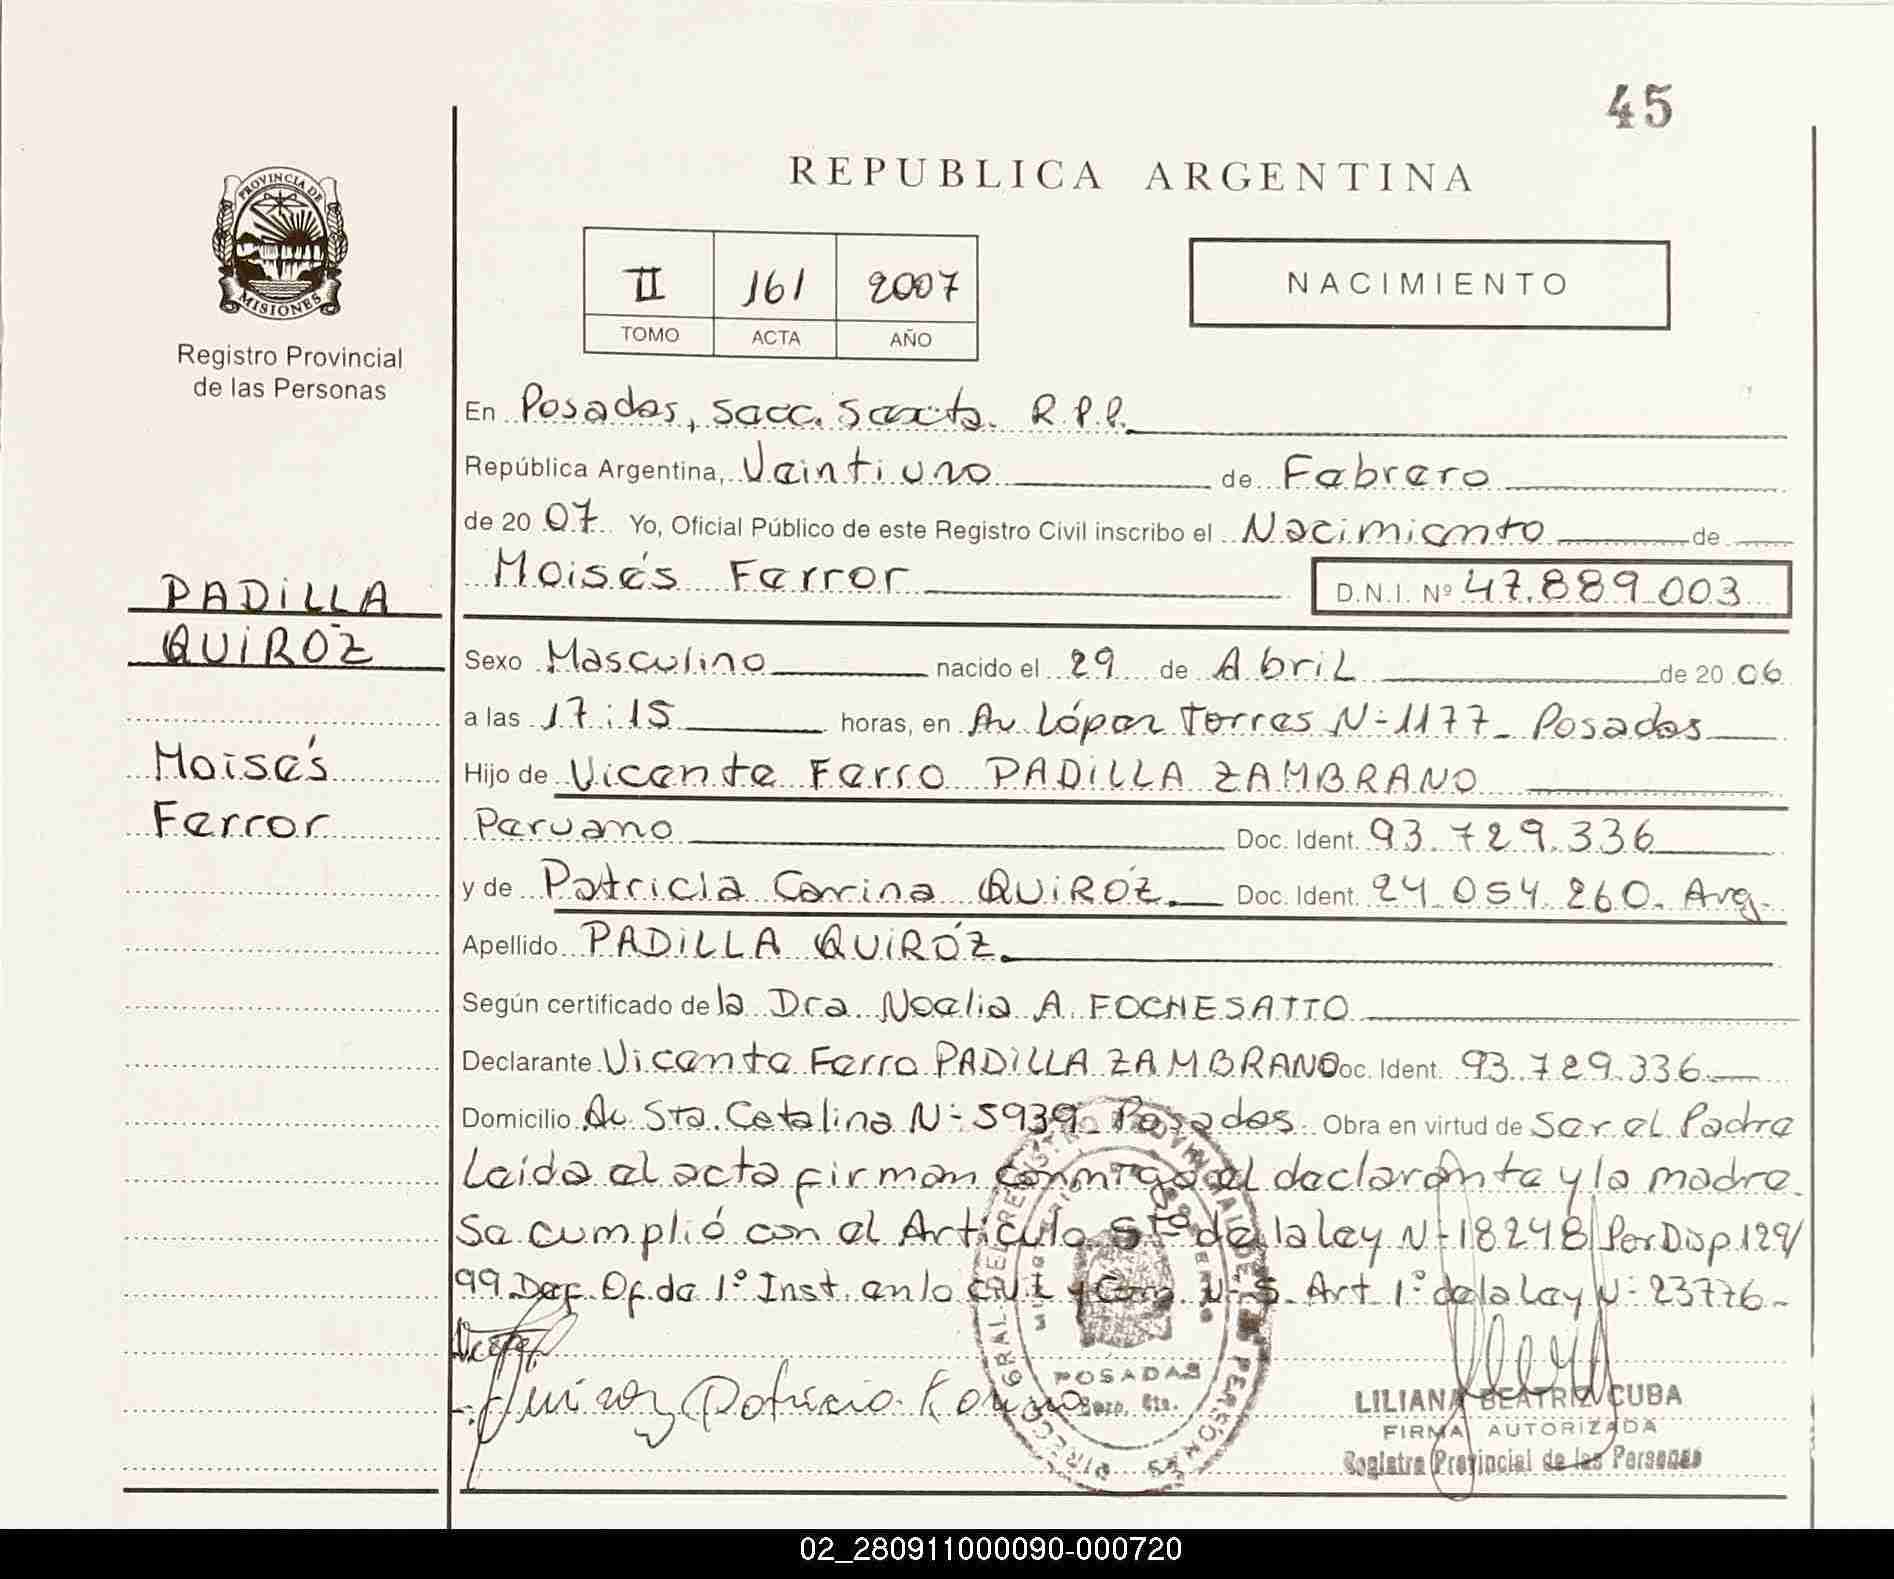 45
REPUBLICA ARGENTINA
PROVINCIA DE
MISIONES
Registro Provincial
de las Personas
II 161 2007
TOMO ACTA AÑO
NACIMIENTO
En Posadas, Secc. Sexta. R.P.P.
República Argentina, Veintiuno de Febrero
de 20 07 Yo, Oficial Público de este Registro Civil inscribo el Nacimiento de
Moisés Ferror D.N.I. Nº 47.889.003
PADILLA
QUIRÓZ
Moisés
Ferror
Sexo Masculino nacido el 29 de Abril de 20 06
a las 17:15 horas, en Av López Torres N-1177- Posadas
Hijo de Vicente Ferro PADILLA ZAMBRANO
Peruano Doc. Ident. 93.729.336
y de Patricia Carina QUIRÓZ. Doc. Ident. 24.054.260. Arg.
Apellido PADILLA QUIRÓZ.
Según certificado de la Dra Noelia A. FOCHESATTO
Declarante Vicente Ferro PADILLA ZAMBRANO Doc. Ident. 93.729.336.
Domicilio Av Sta. Catalina N-5939- Posadas. Obra en virtud de Ser el Padre
Leída el acta firman conmigo el declarante y la madre.
Se cumplió con el Artículo 5to de la ley N-18248 Por Disp 129/
99 Def. Of. de 1º Inst. en lo Civil y Com N-5. Art 1º de la Ley N-23776-
Quiroz Patricia Karina
POSADAS
Secc. 6ta.
LILIANA BEATRIZ CUBA
FIRMA AUTORIZADA
Registro Provincial de las Personas
02_280911000090-000720